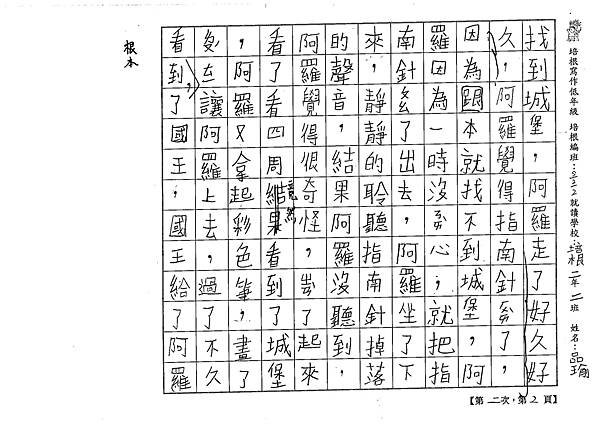 培根寫作低年級 培根編班：
就讀學校：培根二年二班 姓名：品瑜
找到城堡，阿羅走了好久好
久，阿羅覺得指南針歹了，
因為跟本就找不到城堡，阿
羅因為一時沒心；就把指
南針了出去，阿羅坐了下
來，靜靜的聆聽指南針掉落
的聲音，結果阿羅沒聽到，
阿羅覺得很奇怪，了起來
看了看四周竟然看到了城堡
，阿羅又拿起彩色筆，畫了
在讓阿羅上去，過了不久
看到了國王，國王給了阿羅
根本
【第二次，第2頁】